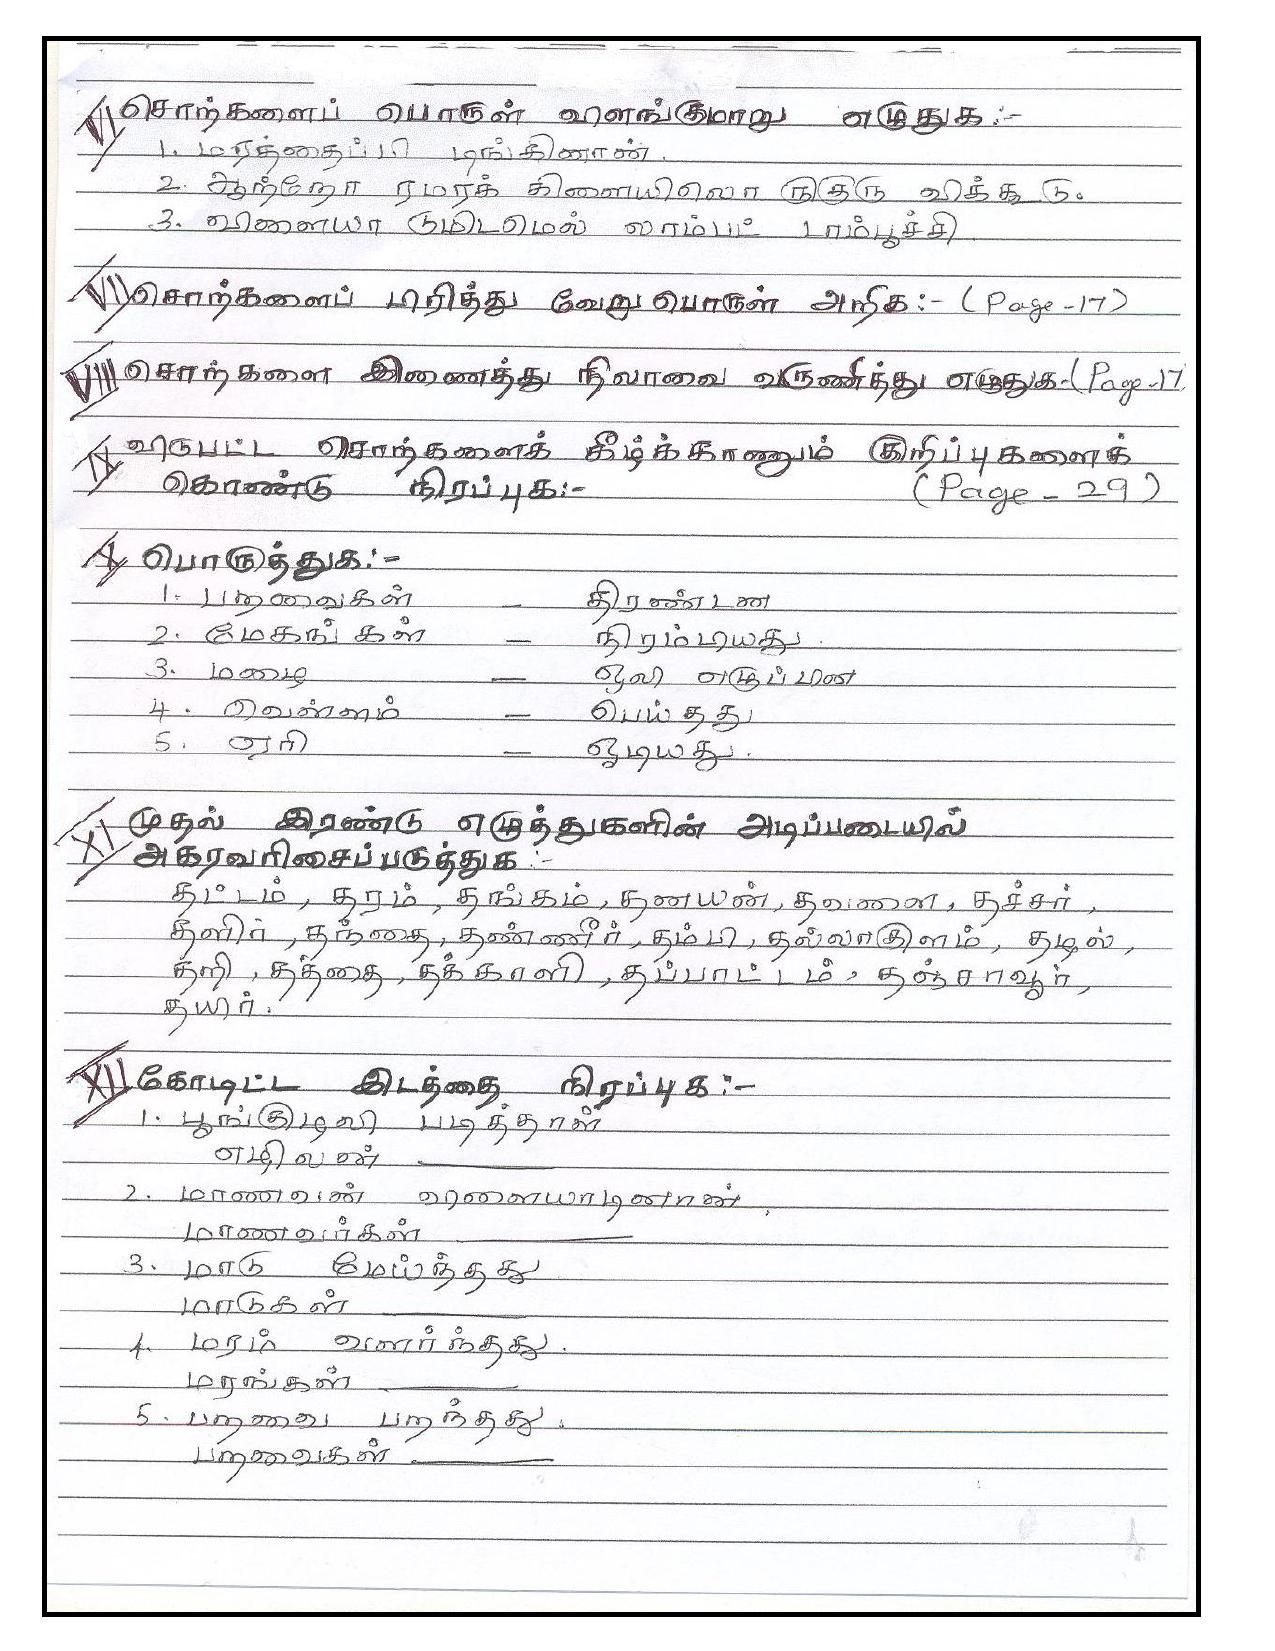 VI சொற்களைப் பொருள் விளங்குமாறு எழுதுக:-
1. மரத்தைப்பி டிங்கினான்.
2. ஆற்றோ ரமரக் கிளையிலொ ருகுரு விக்கூ டு.
3. விளையா டுமிடமெல் லாம்பட் டாம்பூச்சி
VII சொற்களைப் பிரித்து வேறுபொருள் அறிக:- (Page-17)
VIII சொற்களை இணைத்து நிலாவை வருணித்து எழுதுக-(Page-17
IX விடுபட்ட சொற்களைக் கீழ்க்காணும் குறிப்புகளைக்
கொண்டு நிரப்புக:- (Page-29)
X பொருத்துக:-
1. பறவைகள் - திரண்டன
2. மேகங்கள் - நிரம்பியது.
3. மழை - ஒலி எழுப்பின
4. வெள்ளம் - பெய்தது
5. ஏரி - ஓடியது.
XI முதல் இரண்டு எழுத்துகளின் அடிப்படையில்
அகரவரிசைப்படுத்துக:-
தட்டம், தரம், தங்கம், தனயன், தவளை, தச்சர்,
தளிர், தந்தை, தண்ணீர், தம்பி, தல்லாகுளம், தழல்,
தறி, தத்தை, தக்காளி, தப்பாட்டம், தஞ்சாவூர்,
தயிர்.
XII கோடிட்ட இடத்தை நிரப்புக:-
1. பூங்குழலி படித்தாள்
எழிலன்
2. மாணவன் விளையாடினான்.
மாணவர்கள்
3. மாடு மேய்ந்தது
மாடுகள்
4. மரம் வளர்ந்தது.
மரங்கள்
5. பறவை பறந்தது.
பறவைகள்